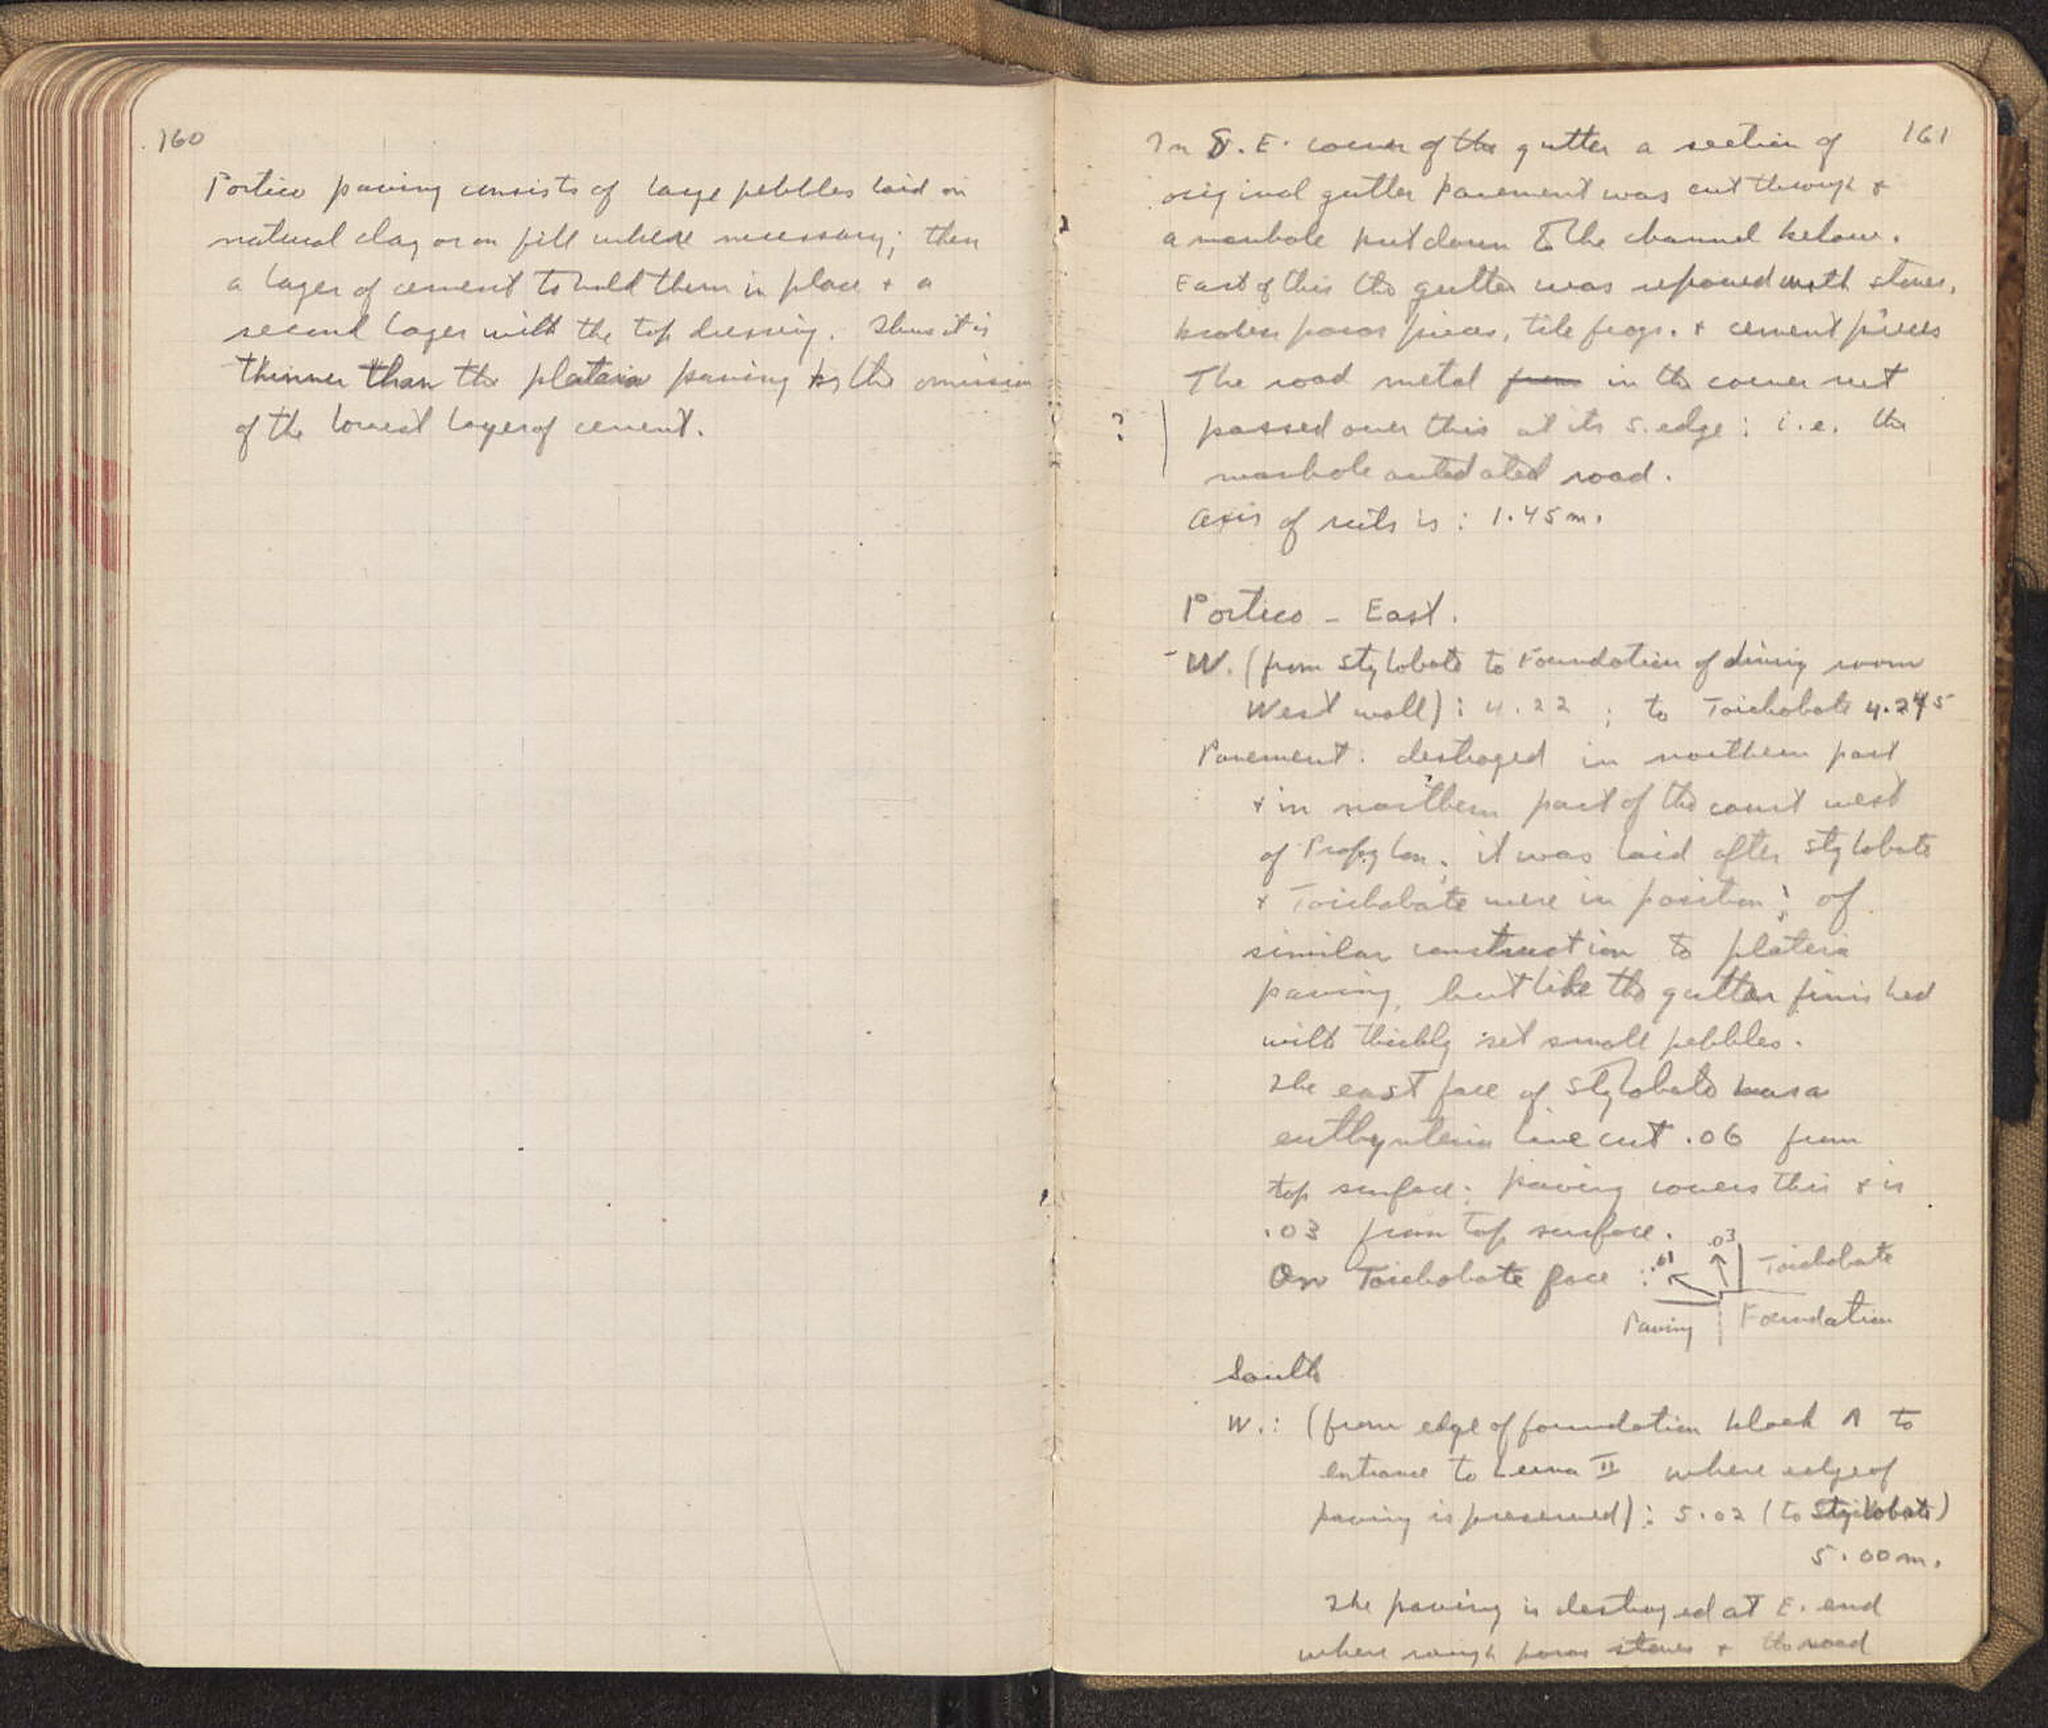 160
Portico paving consists of large pebbles laid on
natural clay or on fill where necessary; then
a layer of cement to hold them in place + a
second layer with the top dressing. Thus it is
thinner than the plateia paving by the omission
of the lowest layer of cement.
161
In S.E. corner of the gutter a section of
original gutter pavement was cut through +
a manhole put down to the channel below.
East of this the gutter was repaved with stones,
broken poros pieces, tile frags. + cement pieces
The road metal from in the corner rut
? passed over this at its S. edge: i.e. the
manhole antedated road.
Axis of ruts is: 1.45 m.
Portico – East.
- W. (from stylobate to Foundation of dining room
West wall): 4.22 ; to Toichobate 4.245
Pavement: destroyed in northern part
+ in northern part of the court west
of Propylon; it was laid after stylobate
+ Toichobate were in position; of
similar construction to plateia
paving, but like the gutter finished
with thickly set small pebbles.
The east face of stylobate has a
euthynteria line cut .06 from
top surface; paving covers this + is
.03 from top surface.
On Toichobate face : .01 .03 Toichobate
Paving Foundation
South
W.: (from edge of foundation block A to
entrance to Lerna II where edge of
paving is preserved): 5.02 (to Stylobate)
5.00 m.
The paving is destroyed at E. end
where rough poros stones + the road